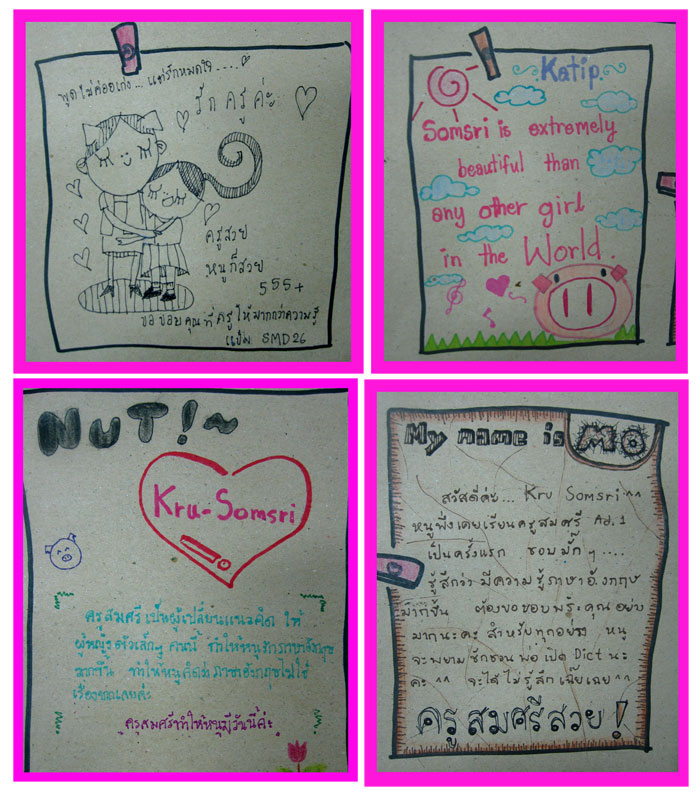 พูดไม่ค่อยเก่ง... แต่รักหมดใจ....
รักครูค่ะ
ครูสวย
หนูก็สวย
555+
ขอขอบคุณที่ครูให้มากกว่าความรู้
แป้ม SMD26
Katip
Somsri is extremely
beautiful than
any other girl
in the World.
NUT!~
Kru-Somsri
ครูสมศรีเป็นผู้เปลี่ยนแนวคิด ให้
ผู้หญิงตัวเล็กๆ คนนี้ ทำให้หนูรักภาษาอังกฤษ
มากขึ้น ทำให้หนูคิดว่าภาษาอังกฤษไม่ใช่
เรื่องยากเลยค่ะ
ครูสมศรีทำให้หนูมีวันนี้ค่ะ
My name is MO
สวัสดีค่ะ... Kru Somsri ^^
หนูพึ่งเคยเรียนครูสมศรี Ad.1
เป็นครั้งแรก ชอบมั๊กๆ ....
รู้สึกว่ามีความรู้ภาษาอังกฤษ
มากขึ้น ต้องขอขอบพระคุณอย่าง
มากนะคะ สำหรับทุกอย่าง หนู
จะพยามชักชวนพ่อเปิด Dict นะ
คะ ^^ จะได้ไม่รู้สึกเฉี๊ยเฉย ^^
ครูสมศรีสวย!